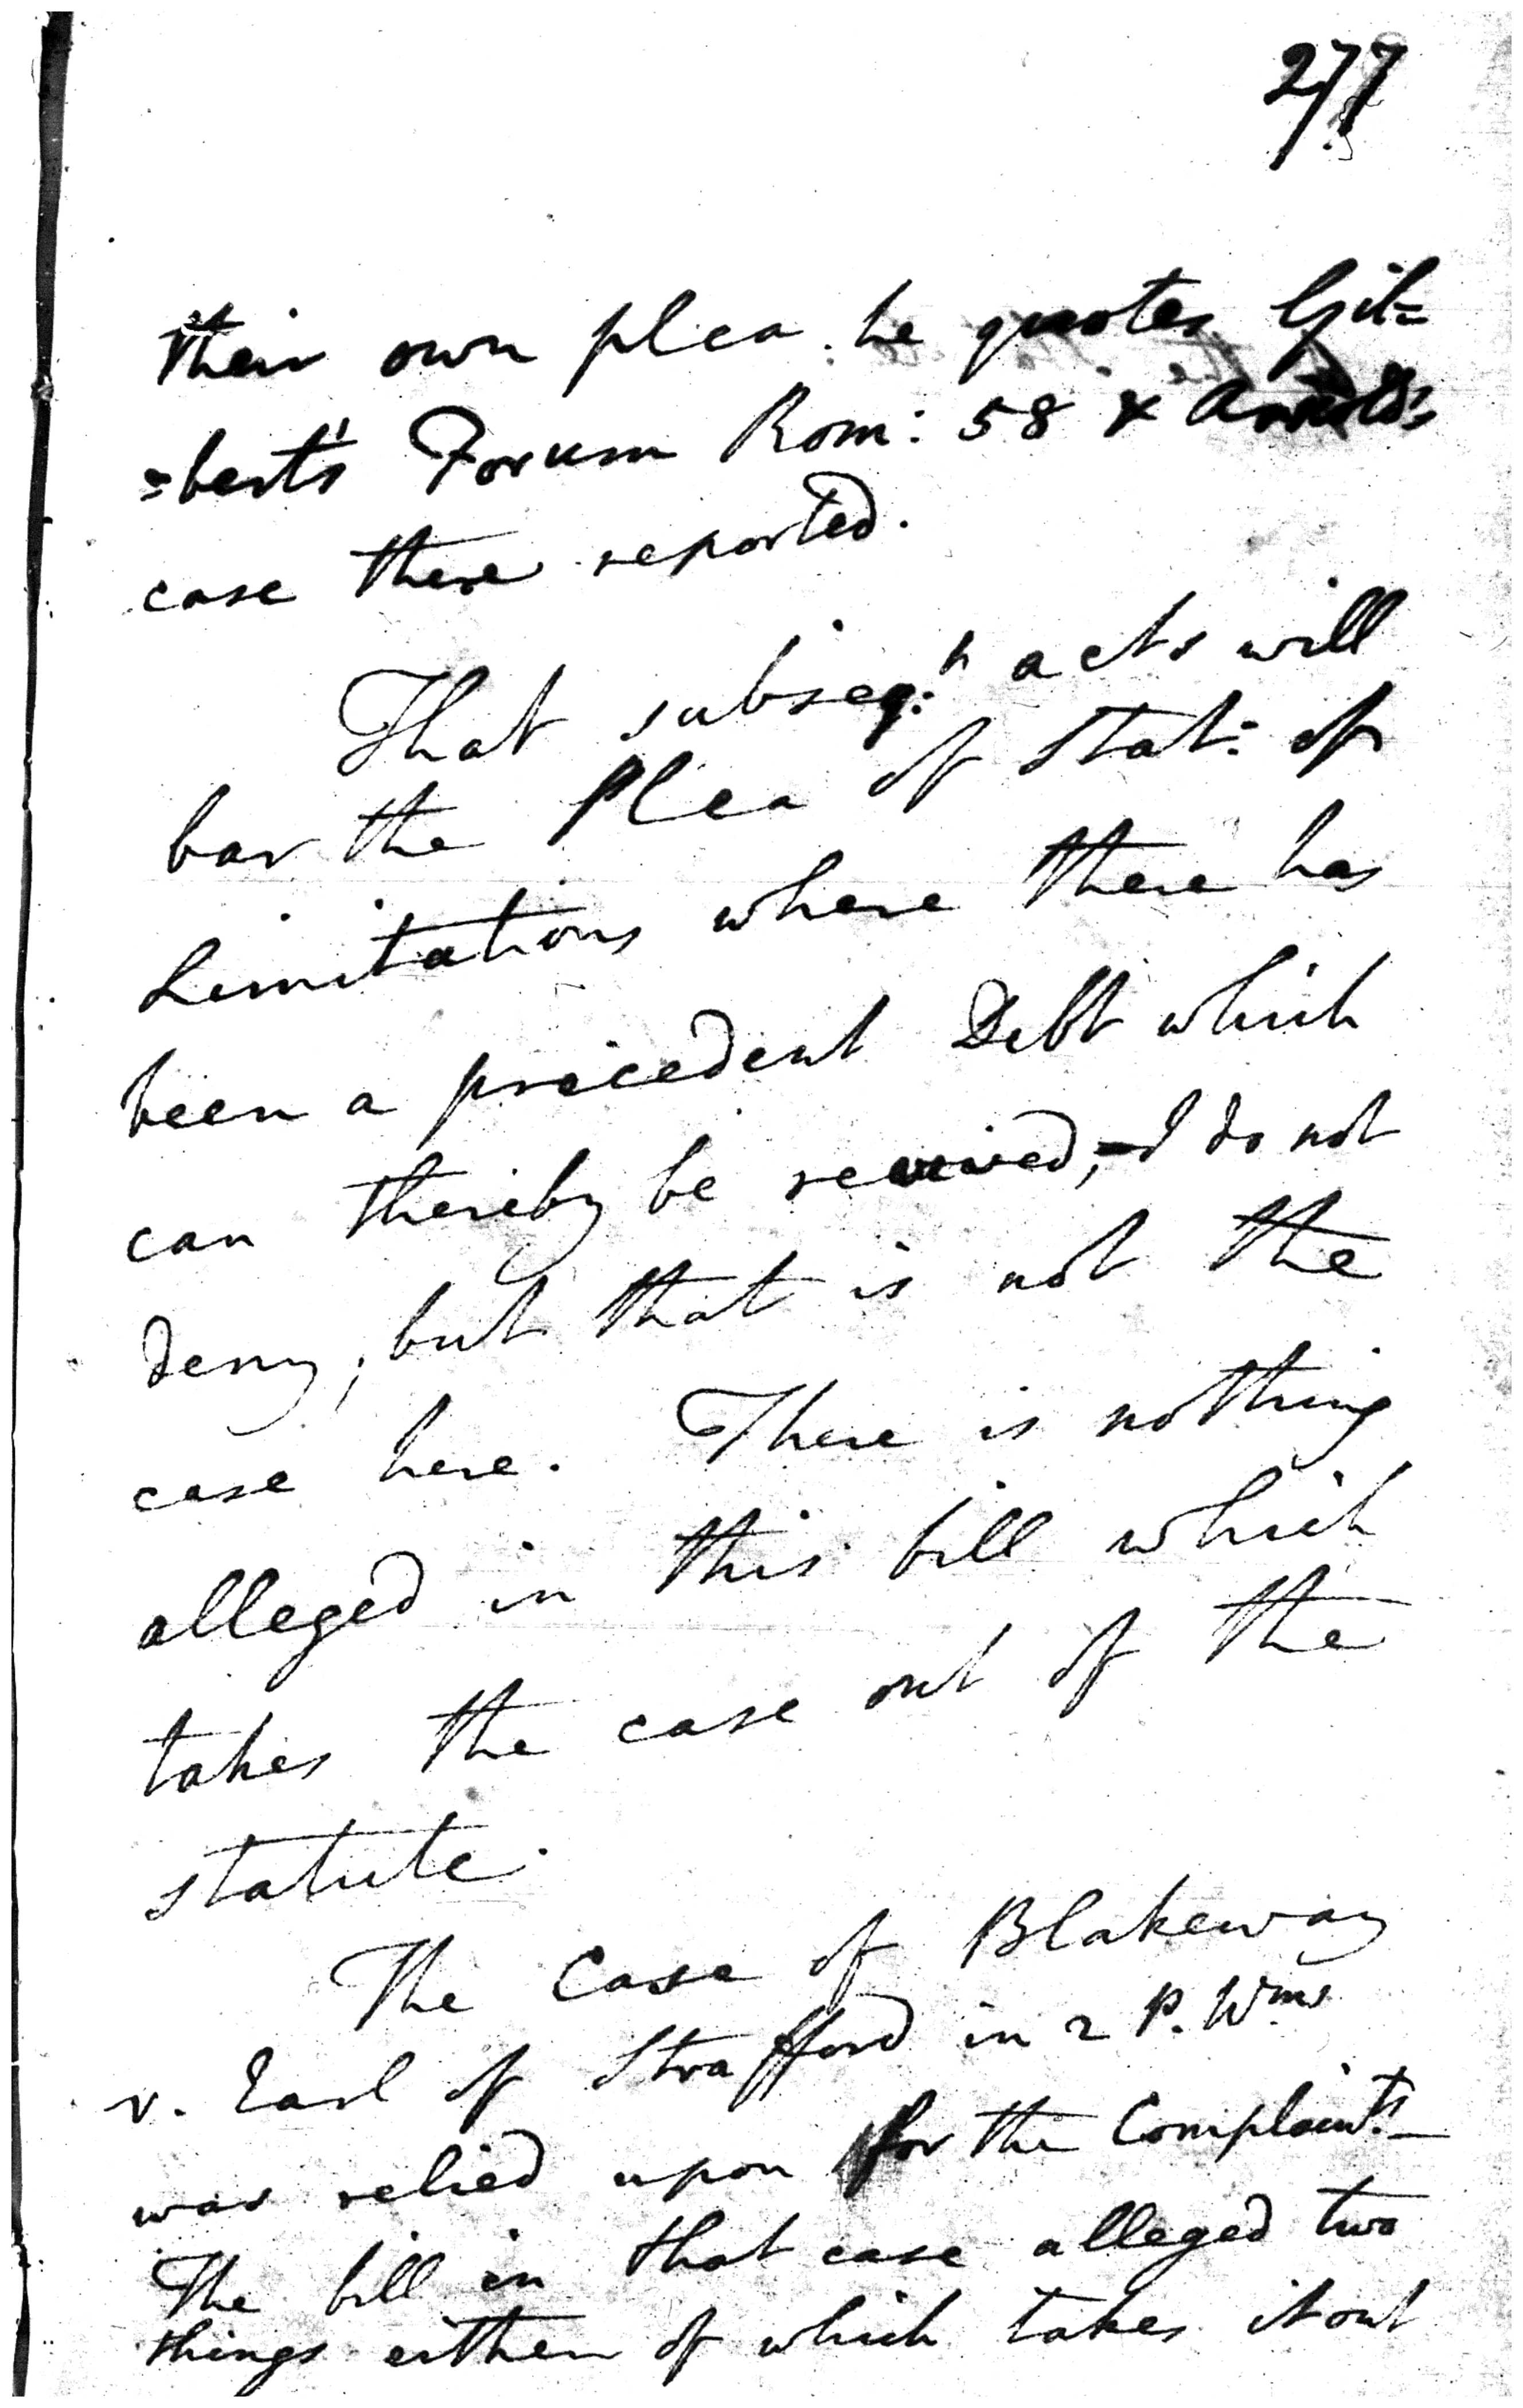 277
their own plea. he quotes Gil=
=bert's Forum Rom: 58 & Arnold's
case there reported.
That subseq:t acts will
bar the Plea of Stat: of
Limitations where there has
been a precedent Debt which
can thereby be revived, I do not
deny; but that is not the
case here. There is nothing
alleged in this bill which
takes the case out of the
statute.
The Case of Blakeway
v. Earl of Strafford in 2 P. Wms
was relied upon for the Complaints
The bill in that case alleged two
things either of which takes it out